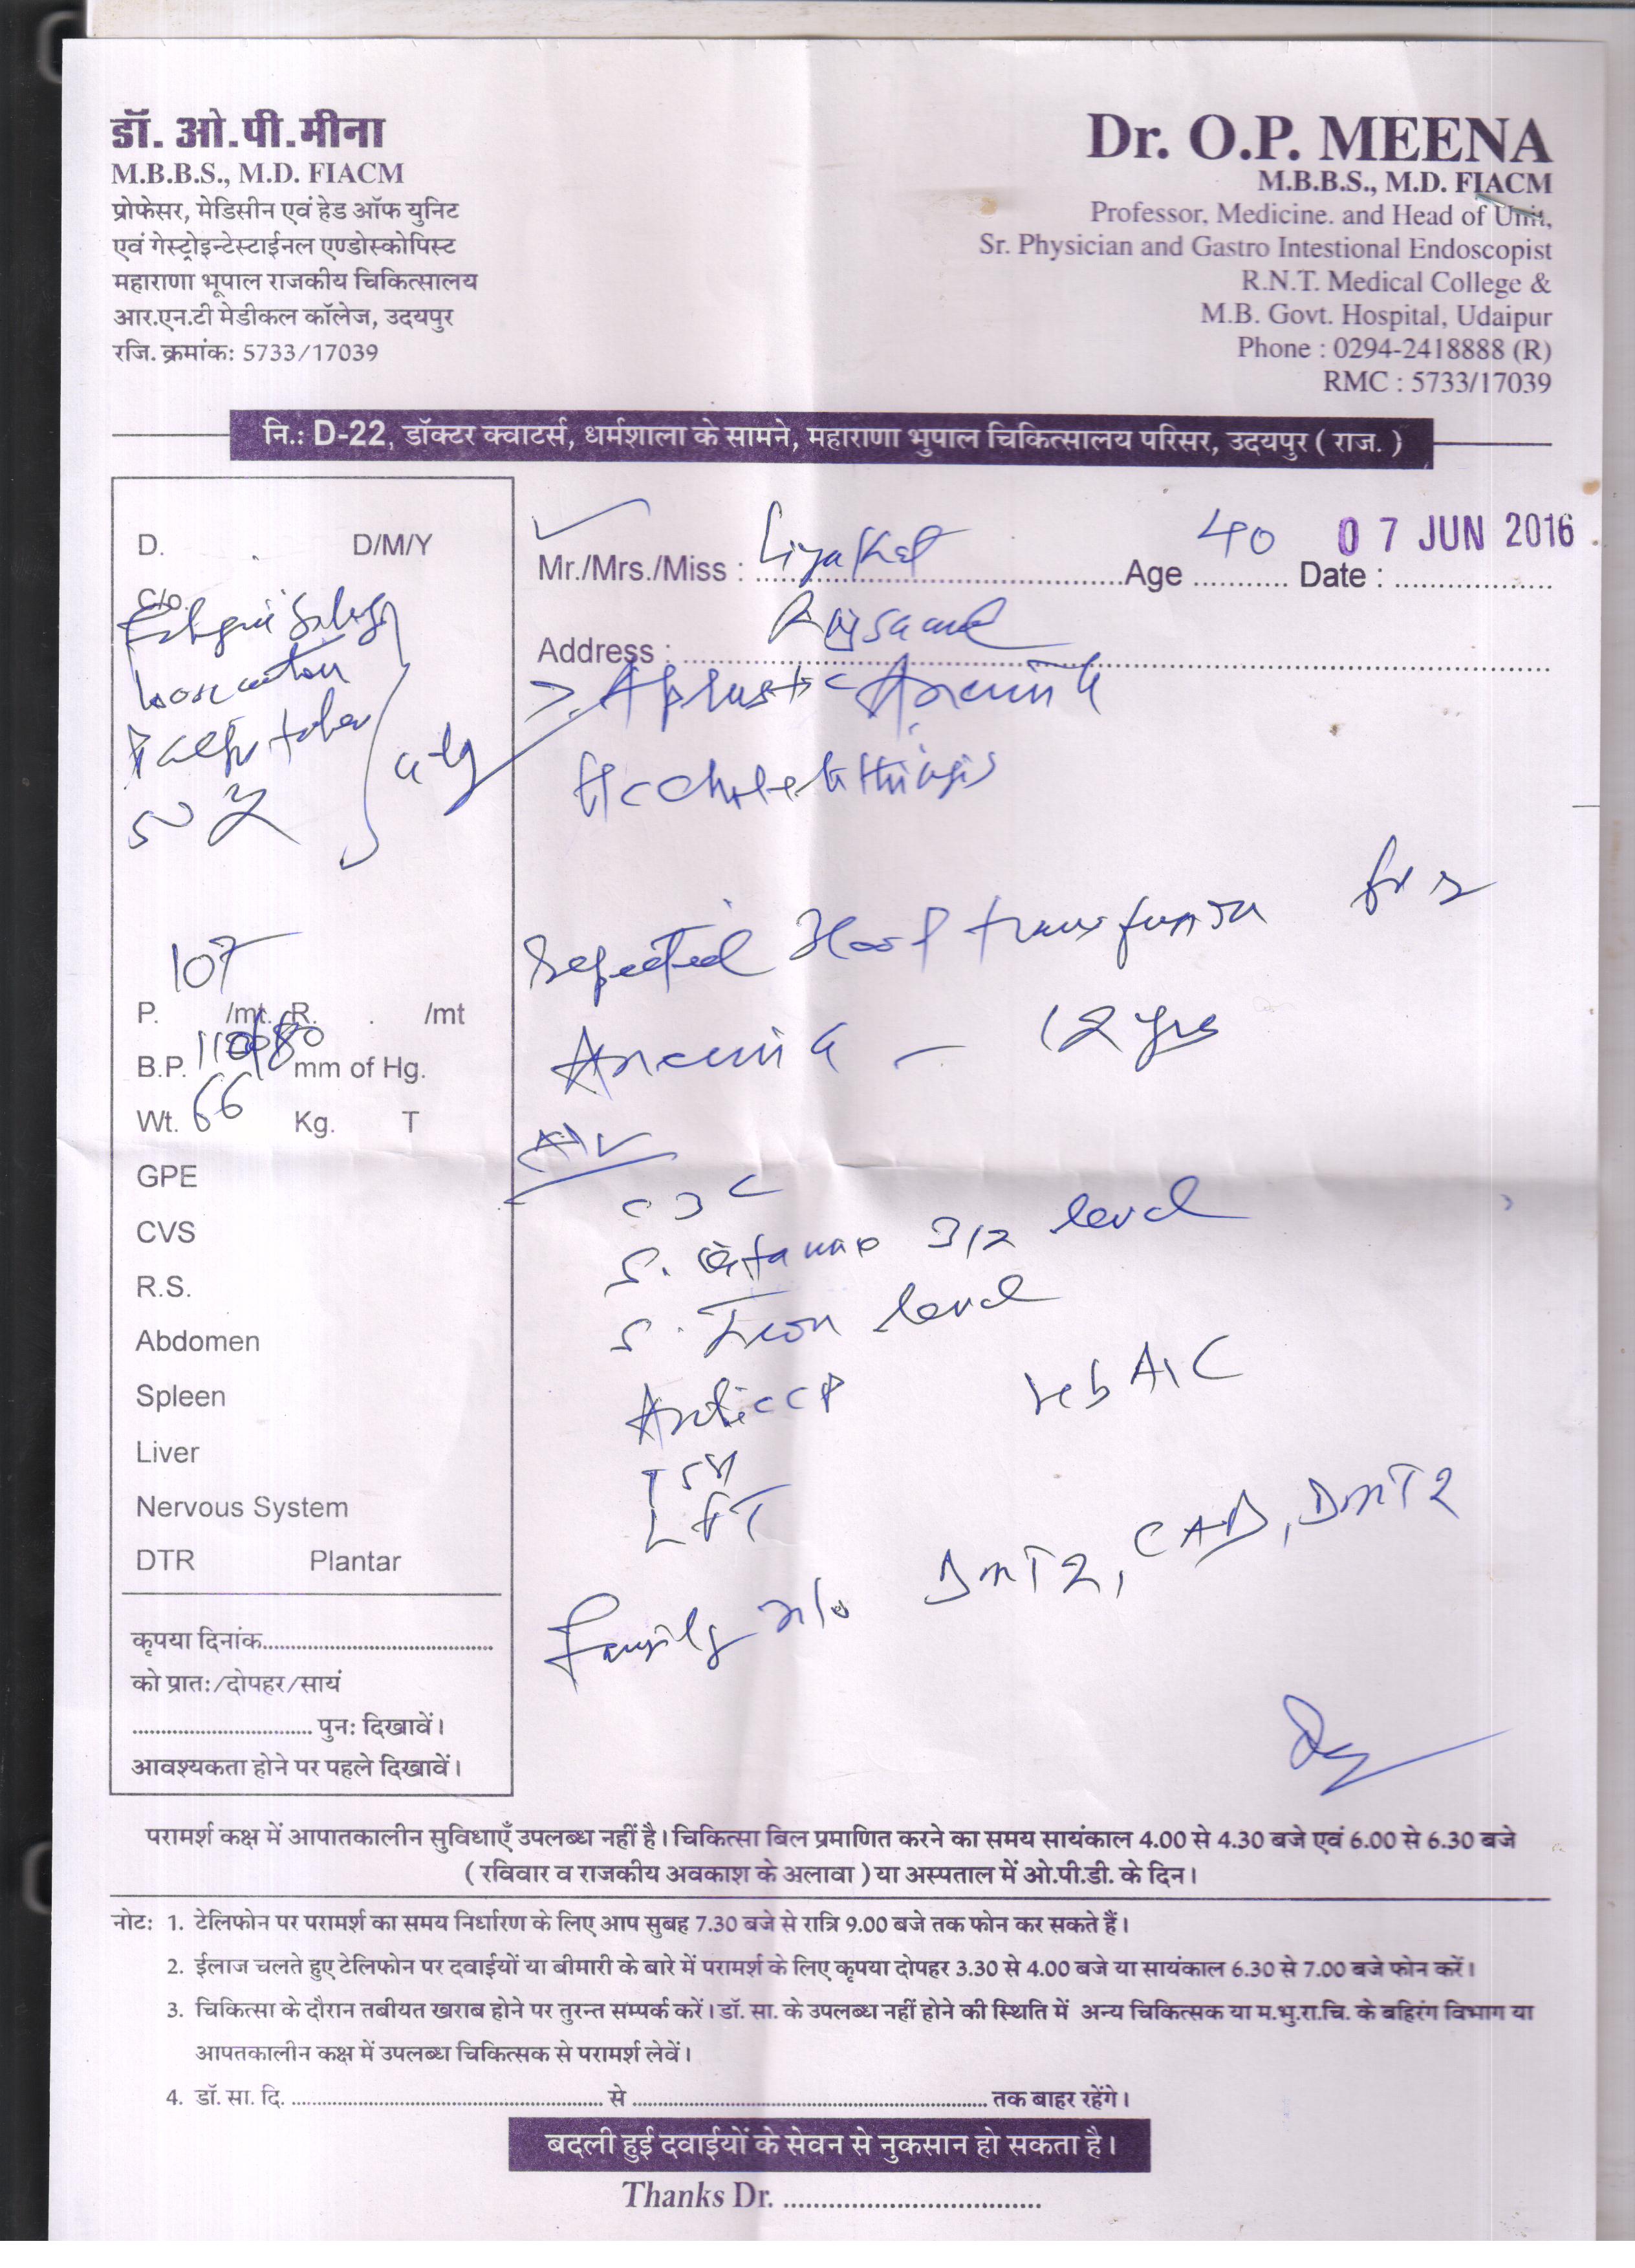 डॉ. ओ.पी.मीना
M.B.B.S., M.D. FIACM
प्रोफेसर, मेडिसीन एवं हेड ऑफ युनिट
एवं गेस्ट्रोइन्टेस्टाईनल एण्डोस्कोपिस्ट
महाराणा भूपाल राजकीय चिकित्सालय
आर.एन.टी मेडीकल कॉलेज, उदयपुर
रजि. क्रमांक: 5733/17039
Dr. O.P. MEENA
M.B.B.S., M.D. FIACM
Professor, Medicine. and Head of Unit,
Sr. Physician and Gastro Intestional Endoscopist
R.N.T. Medical College &
M.B. Govt. Hospital, Udaipur
Phone : 0294-2418888 (R)
RMC : 5733/17039
नि.: D-22, डॉक्टर क्वाटर्स, धर्मशाला के सामने, महाराणा भुपाल चिकित्सालय परिसर, उदयपुर ( राज. )
D. D/M/Y
C/o.
107
P. /mt. R. /mt
B.P. 110/80 mm of Hg.
Wt. 66 Kg. T
GPE
CVS
R.S.
Abdomen
Spleen
Liver
Nervous System
DTR Plantar
कृपया दिनांक
को प्रात:/दोपहर/सायं
पुन: दिखावें।
आवश्यकता होने पर पहले दिखावें।
Mr./Mrs./Miss : Liyakat Age 40 Date : 07 JUN 2016
Address : Rajsamand
Aplastic Anemia
Repeated Blood transfusion for
Anemia - 12 yrs
Adv
CBC
S. Vitamin B12 level
S. Iron level
Anti CCP HbA1C
TSH
LFT
Family H/o DMT2, CAD, DMT2
परामर्श कक्ष में आपातकालीन सुविधाएँ उपलब्ध नहीं है। चिकित्सा बिल प्रमाणित करने का समय सायंकाल 4.00 से 4.30 बजे एवं 6.00 से 6.30 बजे
( रविवार व राजकीय अवकाश के अलावा ) या अस्पताल में ओ.पी.डी. के दिन।
नोट: 1. टेलिफोन पर परामर्श का समय निर्धारण के लिए आप सुबह 7.30 बजे से रात्रि 9.00 बजे तक फोन कर सकते हैं।
2. ईलाज चलते हुए टेलिफोन पर दवाईयों या बीमारी के बारे में परामर्श के लिए कृपया दोपहर 3.30 से 4.00 बजे या सायंकाल 6.30 से 7.00 बजे फोन करें।
3. चिकित्सा के दौरान तबीयत खराब होने पर तुरन्त सम्पर्क करें। डॉ. सा. के उपलब्ध नहीं होने की स्थिति में अन्य चिकित्सक या म.भु.रा.चि. के बहिरंग विभाग या
आपतकालीन कक्ष में उपलब्ध चिकित्सक से परामर्श लेवें।
4. डॉ. सा. दि. से तक बाहर रहेंगे।
बदली हुई दवाईयों के सेवन से नुकसान हो सकता है।
Thanks Dr.